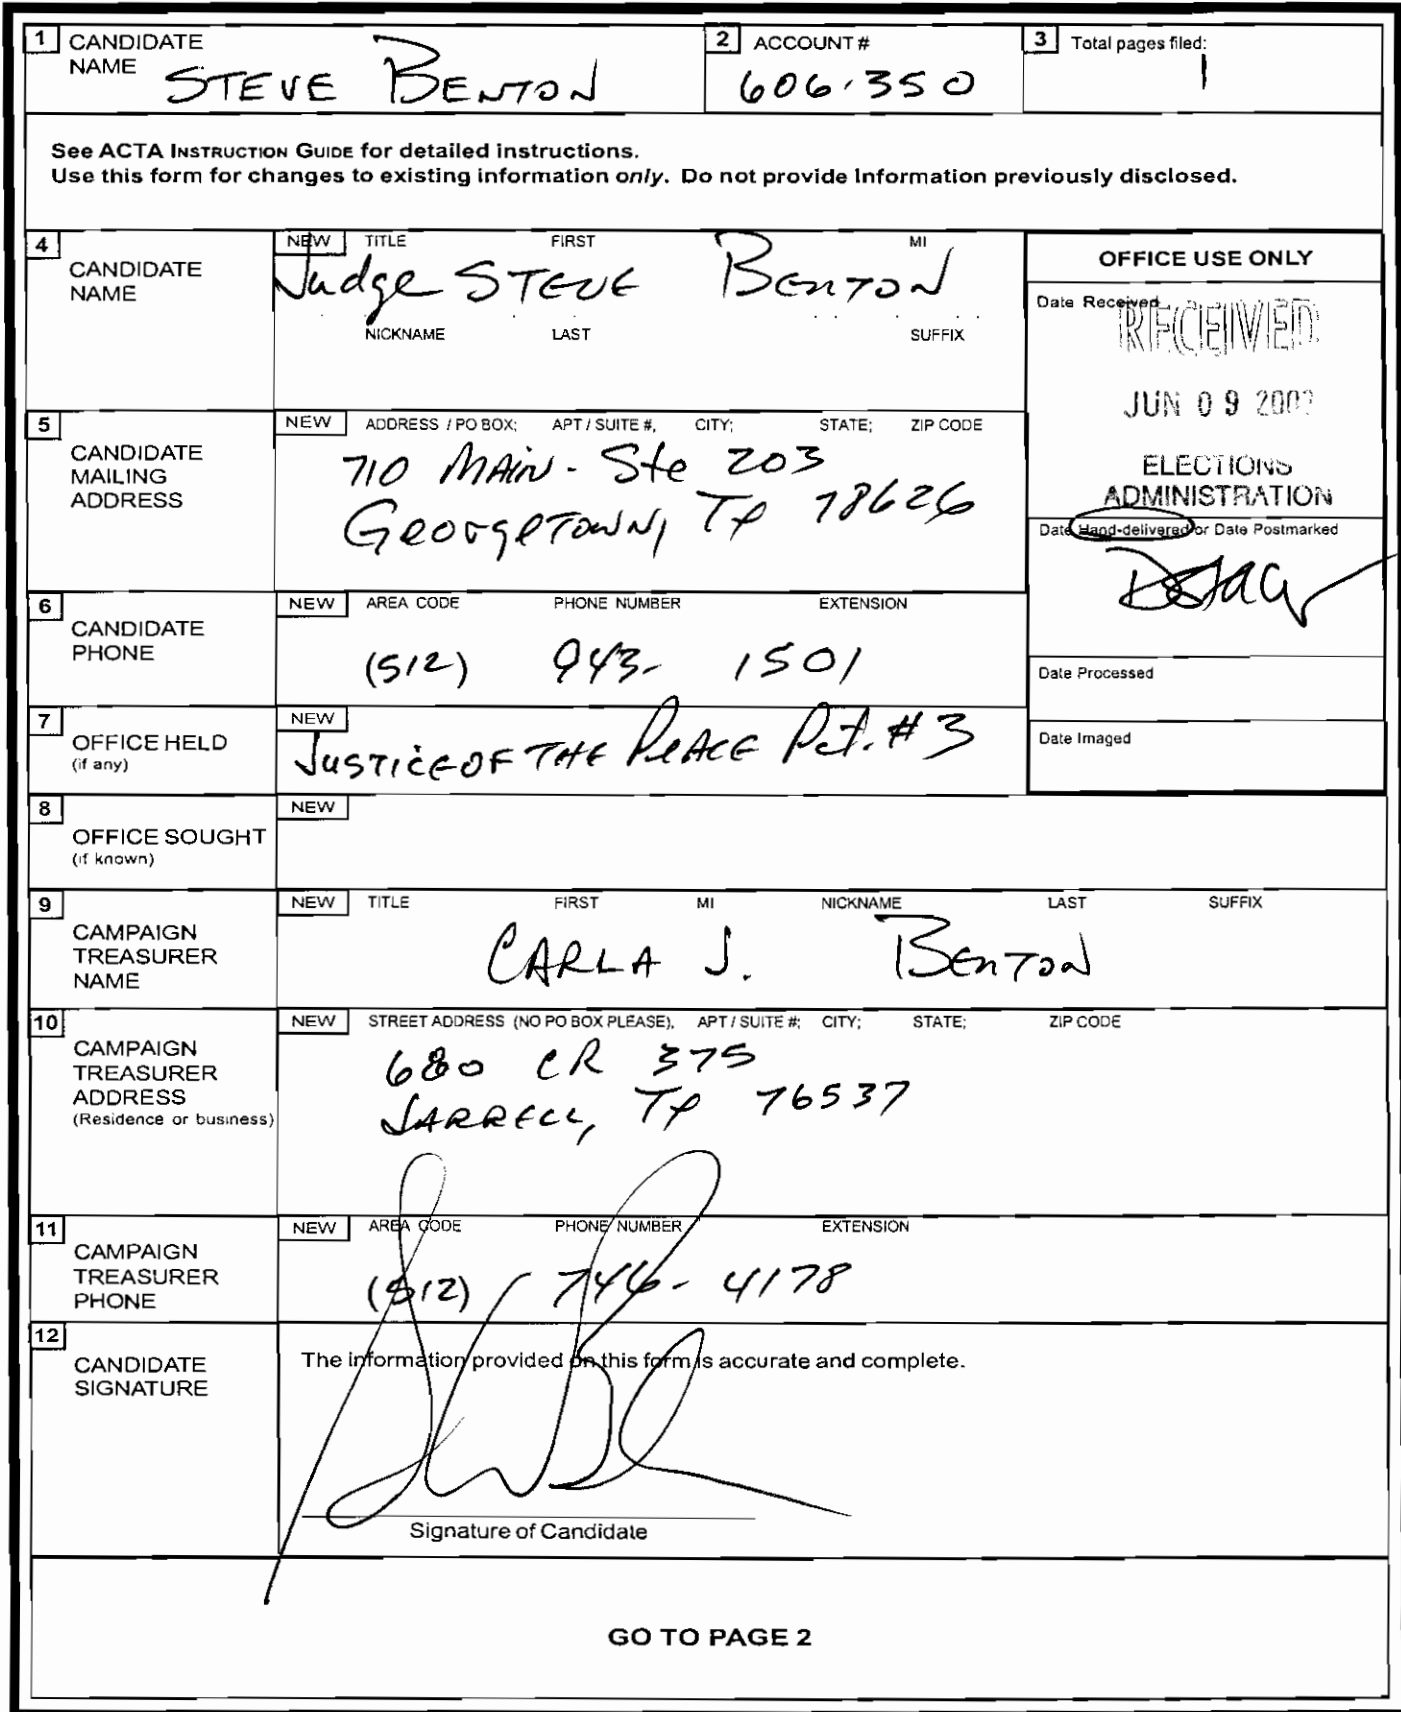 1 CANDIDATE NAME STEVE BENTON
2 ACCOUNT # 606-350
3 Total pages filed: 1
See ACTA INSTRUCTION GUIDE for detailed instructions.
Use this form for changes to existing information only. Do not provide Information previously disclosed.
4 CANDIDATE NAME
NEW TITLE FIRST MI
Judge STEVE BENTON
NICKNAME LAST SUFFIX
OFFICE USE ONLY
Date Received
RECEIVED
JUN 09
ELECTIONS
ADMINISTRATION
Date Hand-delivered or Date Postmarked
Date Processed
Date Imaged
5 CANDIDATE MAILING ADDRESS
NEW ADDRESS / PO BOX; APT / SUITE #, CITY; STATE; ZIP CODE
710 MAIN - Ste 203
GeorgeTown, TX 78626
6 CANDIDATE PHONE
NEW AREA CODE PHONE NUMBER EXTENSION
(512) 943- 1501
7 OFFICE HELD (if any)
NEW
JUSTICE OF THE PEACE Pct. #3
8 OFFICE SOUGHT (if known)
NEW
9 CAMPAIGN TREASURER NAME
NEW TITLE FIRST MI NICKNAME LAST SUFFIX
CARLA J. BENTON
10 CAMPAIGN TREASURER ADDRESS (Residence or business)
NEW STREET ADDRESS (NO PO BOX PLEASE), APT / SUITE #; CITY; STATE; ZIP CODE
680 CR 375
JARRELL, TX 76537
11 CAMPAIGN TREASURER PHONE
NEW AREA CODE PHONE NUMBER EXTENSION
(512) 746- 4178
12 CANDIDATE SIGNATURE
The information provided on this form is accurate and complete.
Signature of Candidate
GO TO PAGE 2